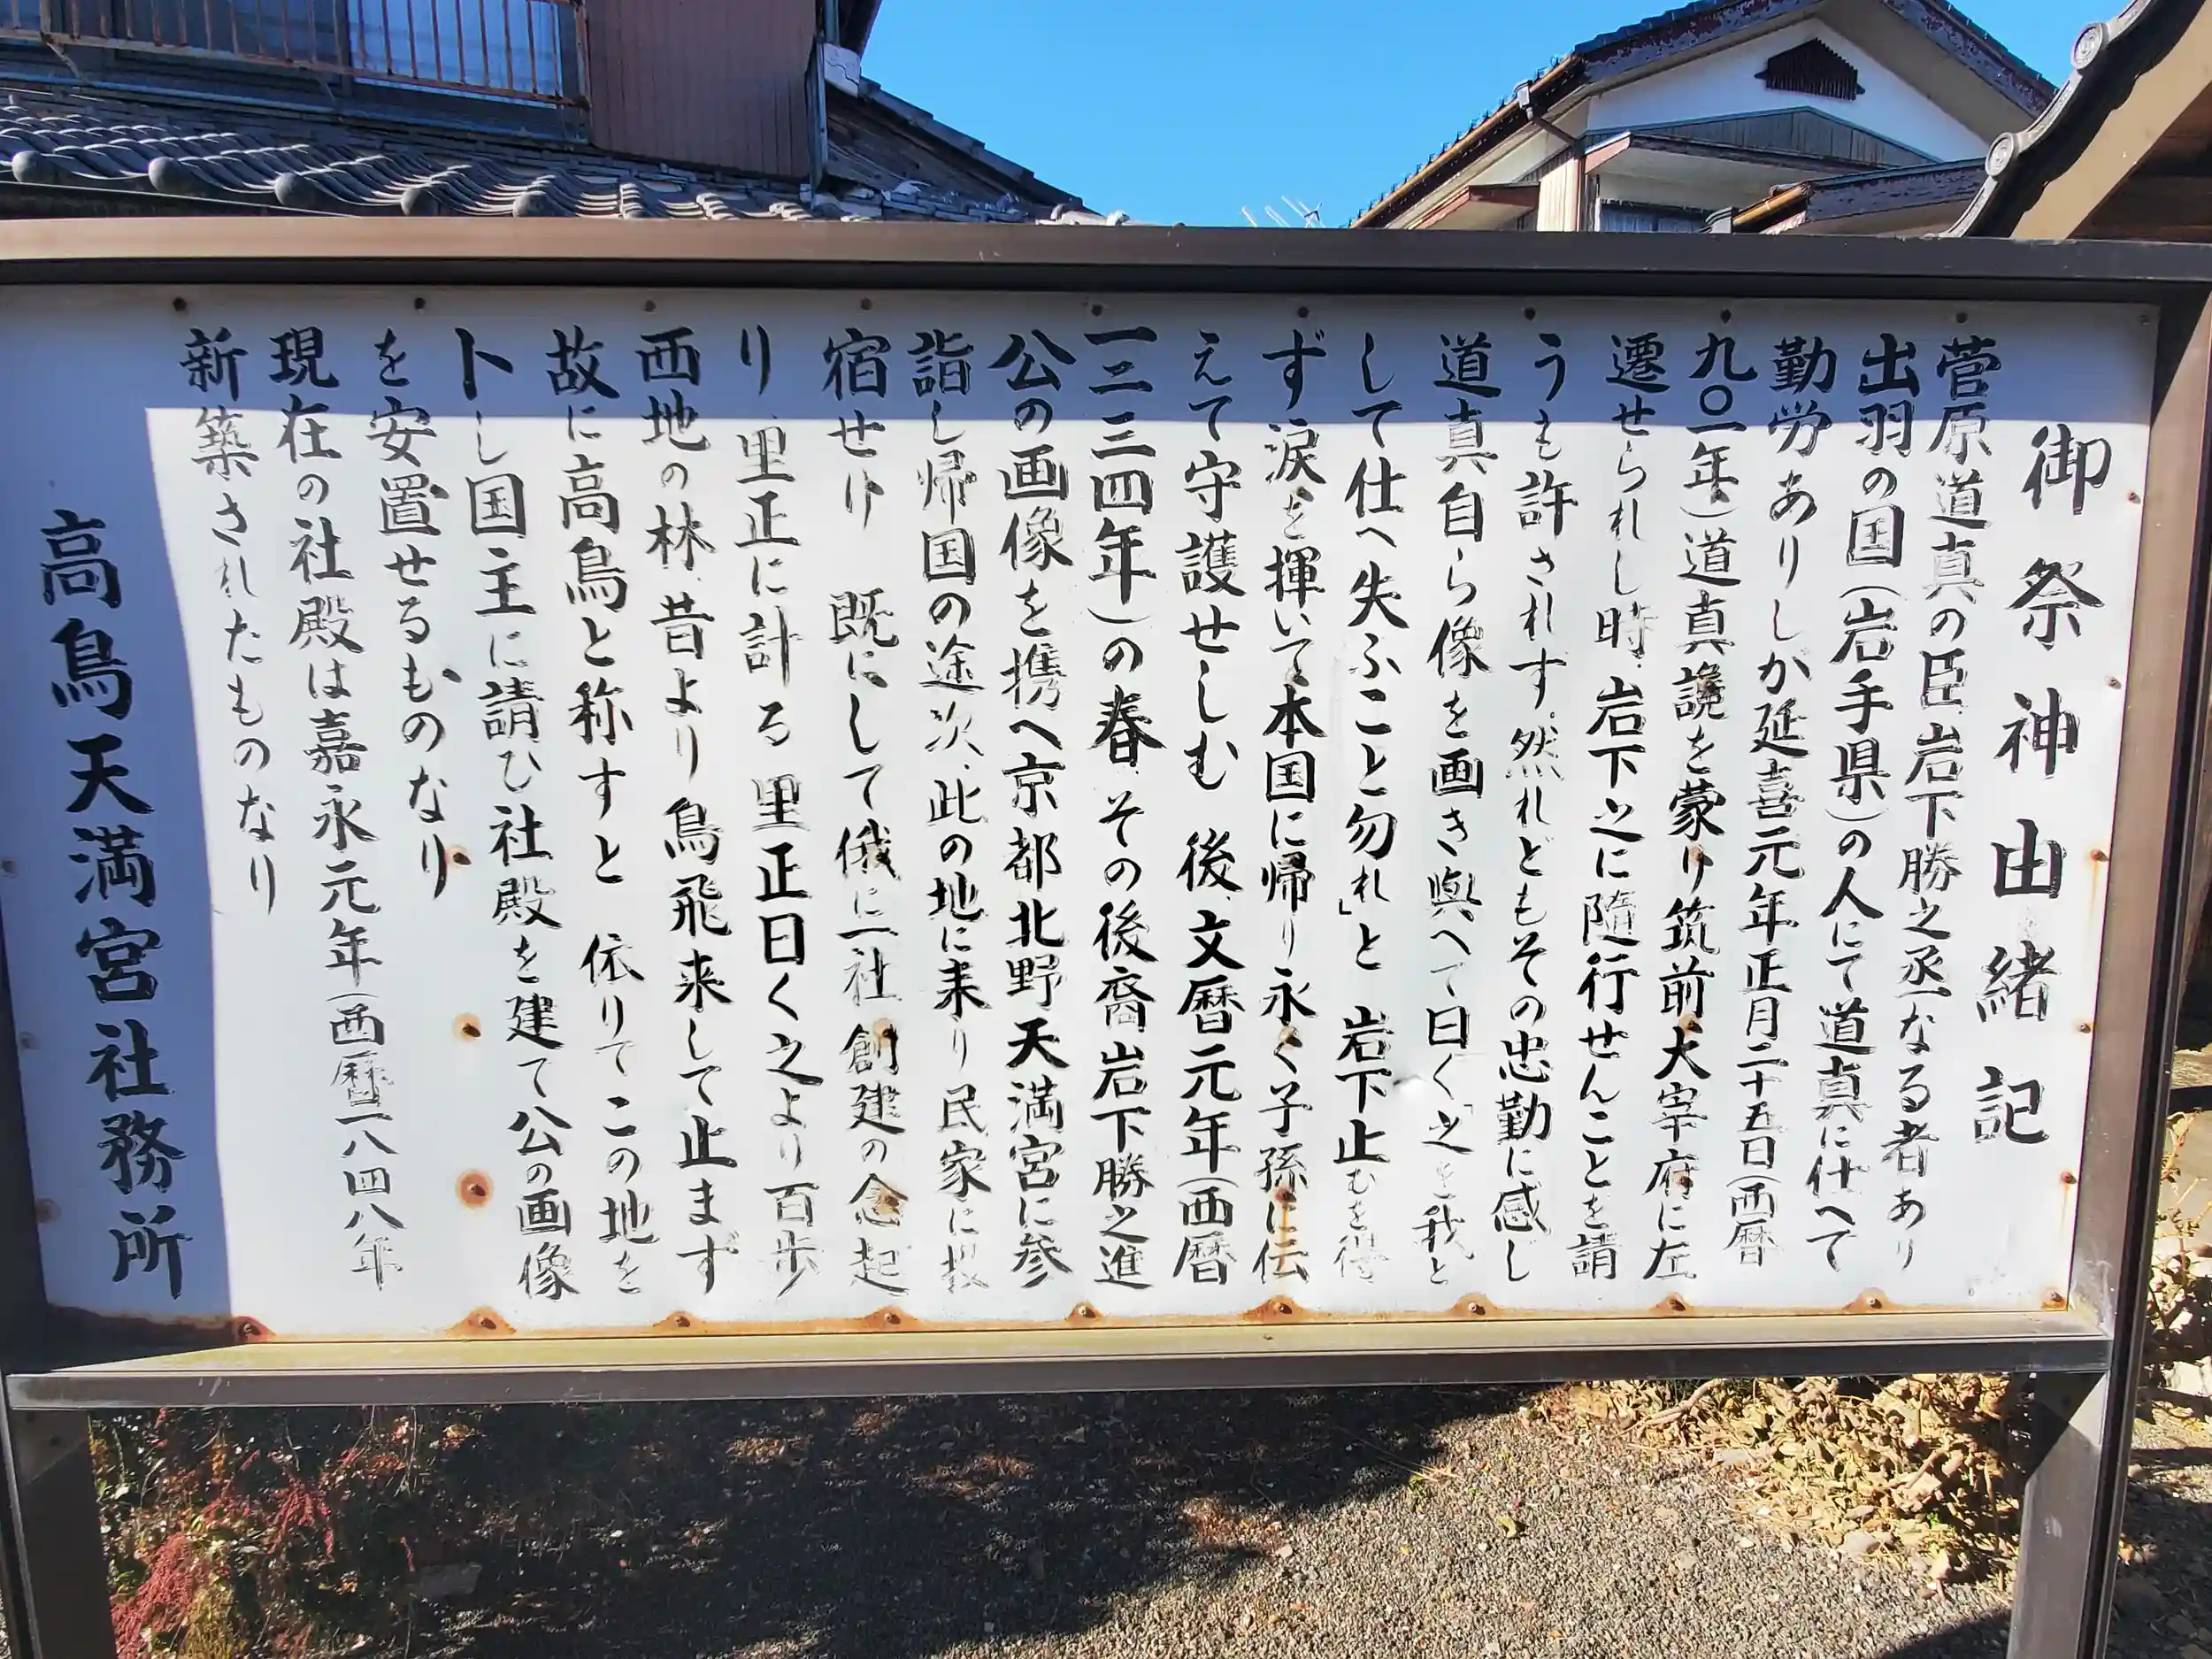 御祭神由緒記
菅原道真の臣岩下勝之丞なる者あり
出羽の国(岩手県)の人にて道真に仕へて
勤労ありしが延喜元年正月二十五日(西暦
九〇一年)道真讒を蒙り筑前大宰府に左
遷せられし時、岩下之に隨行せんことを請
うも許されす。然れどもその忠勤に感し
道真自ら像を画き與へて曰く「之を我と
して仕へ失ふこと勿れ」と 岩下止むを得
ず涙を揮いて本国に帰り永く子孫に伝
えて守護せしむ 後、文暦元年(西暦
一二三四年)の春、その後裔岩下勝之進
公の画像を携へ京都北野天満宮に参
詣し帰国の途次、此の地に来り民家に投
宿せり 既にして俄に一社創建の念起
り、里正に計る 里正曰く之より百歩
西地の林、昔より鳥飛来して止まず
故に高鳥と称すと 依りてこの地を
卜し国主に請ひ社殿を建て公の画像
を安置せるものなり
現在の社殿は嘉永元年(西暦一八四八年
新築されたものなり
高鳥天満宮社務所